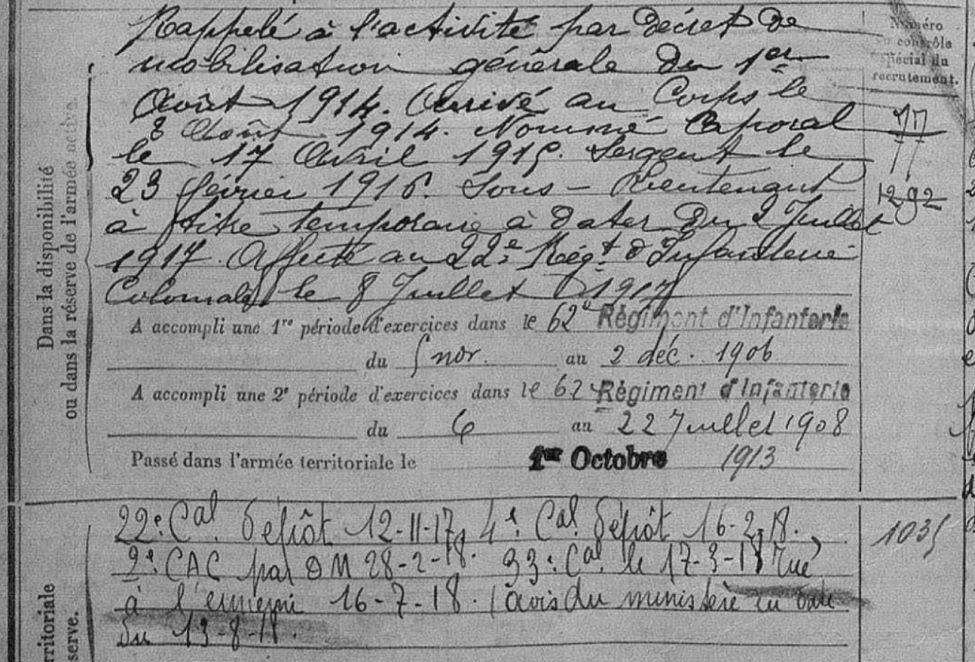 Rappelé à l'activité par décret de
mobilisation générale du 1er
Août 1914. Arrivé au Corps le
8 Août 1914. Nommé Caporal
le 17 Avril 1915. Sergent le
23 février 1916. Sous-Lieutenant
à titre temporaire à dater du 2 Juillet
1917. Affecté au 22e Régt d'Infanterie
Coloniale le 8 Juillet 1917
A accompli une 1re période d'exercices dans le 62e Régiment d'Infanterie
du 5 nov. au 2 déc. 1906
A accompli une 2e période d'exercices dans le 62e Régiment d'Infanterie
du 6 au 22 Juillet 1908
Passé dans l'armée territoriale le 1er Octobre 1913
22e Cal Dépôt 12-11-17. 4e Cal Dépôt 16-2-18.
9e CAC par DM 28-2-18. 33e Cal le 17-3-18 Tué
à l'ennemi 16-7-18. (avis du ministère en date
du 13-8-18.
Dans la disponibilité
ou dans la réserve de l'armée active.
Numéro
au contrôle
spécial du
recrutement.
77
1292
1035
rritoriale
serve.